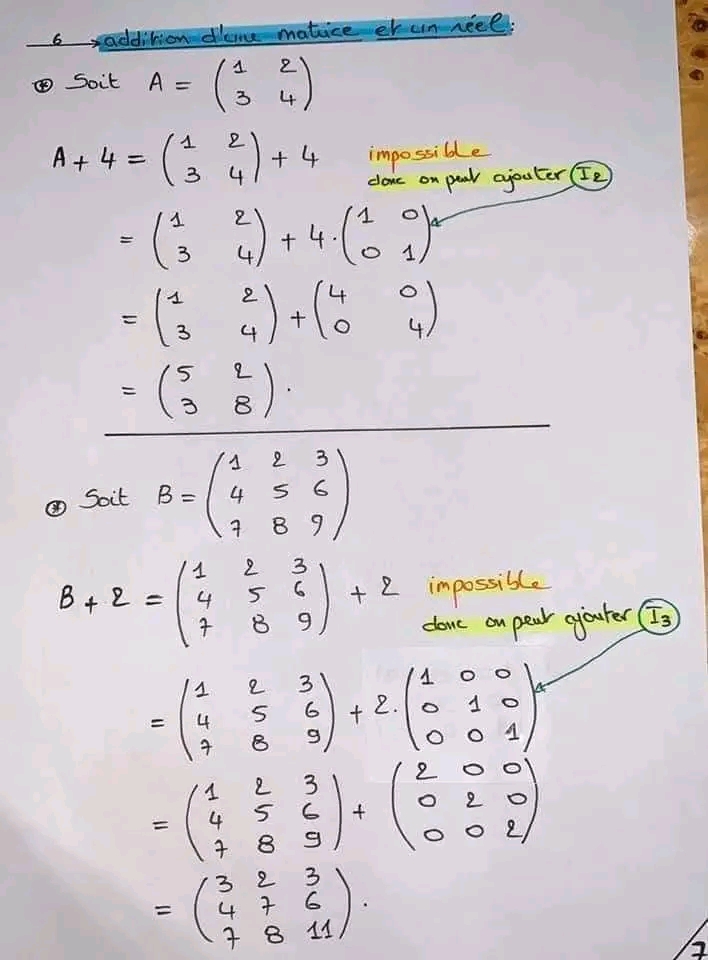 6 → addition d'une matrice et un réel:
⊛ Soit A = (1 2
3 4)
A + 4 = (1 2
3 4) + 4 impossible
donc on peut ajouter I2
= (1 2
3 4) + 4 · (1 0
0 1)
= (1 2
3 4) + (4 0
0 4)
= (5 2
3 8) .
⊛ Soit B = (1 2 3
4 5 6
7 8 9)
B + 2 = (1 2 3
4 5 6
7 8 9) + 2 impossible
donc on peut ajouter I3
= (1 2 3
4 5 6
7 8 9) + 2 · (1 0 0
0 1 0
0 0 1)
= (1 2 3
4 5 6
7 8 9) + (2 0 0
0 2 0
0 0 2)
= (3 2 3
4 7 6
7 8 11) .
7